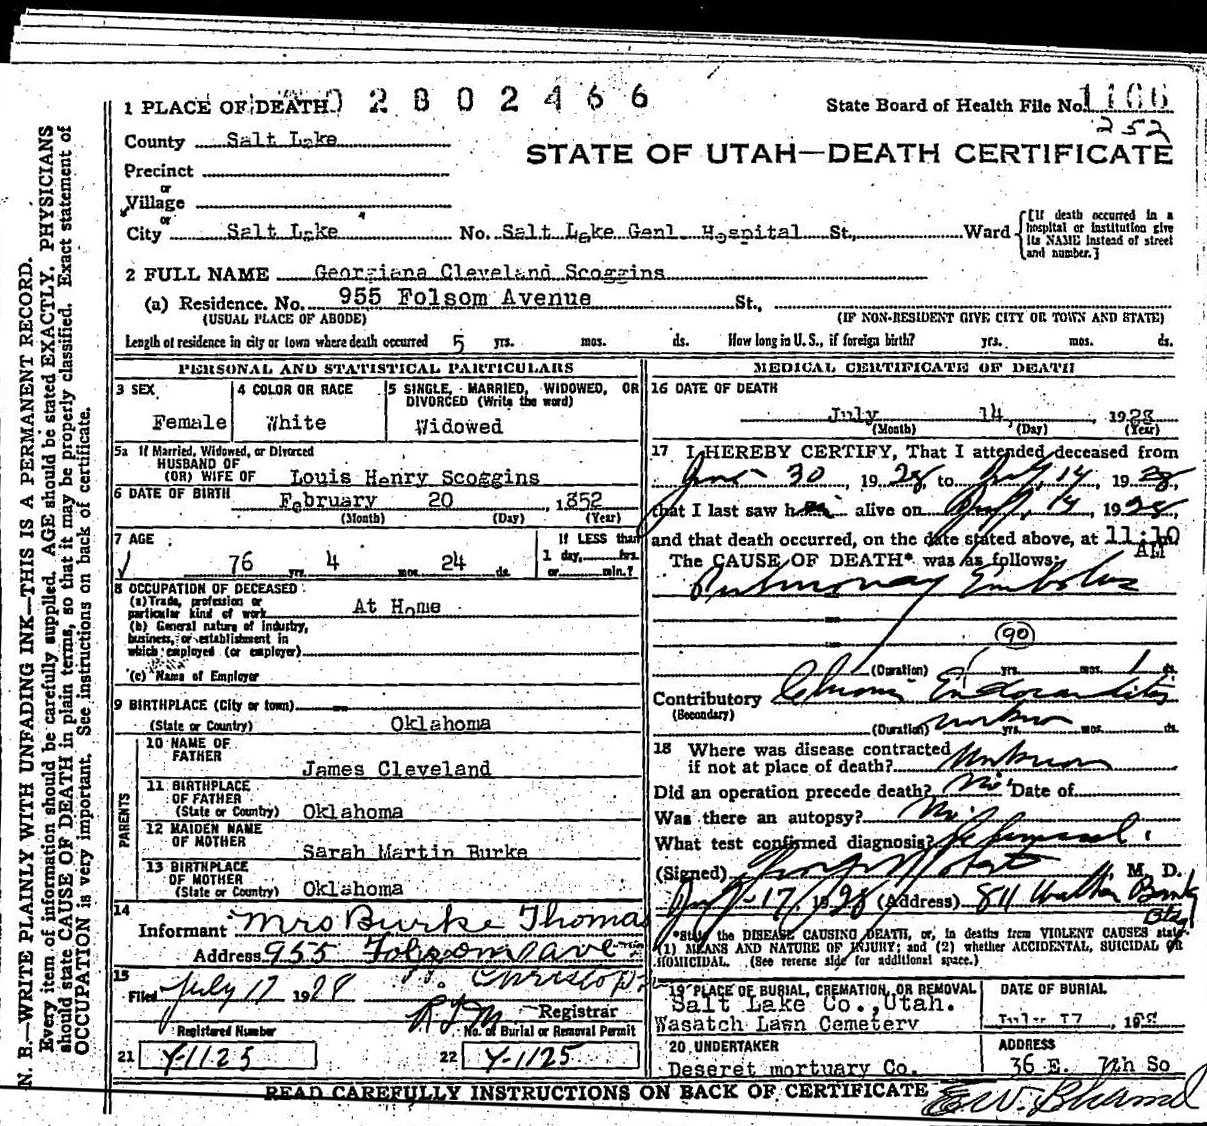 N. B.—WRITE PLAINLY WITH UNFADING INK—THIS IS A PERMANENT RECORD.
Every item of information should be carefully supplied. AGE should be stated EXACTLY. PHYSICIANS
should state CAUSE OF DEATH in plain terms, so that it may be properly classified. Exact statement of
OCCUPATION is very important. See instructions on back of certificate.
1 PLACE OF DEATH 0 2 8 0 2 4 6 6 State Board of Health File No. 1166
252
County Salt Lake
STATE OF UTAH—DEATH CERTIFICATE
Precinct
or
Village
or
City Salt Lake No. Salt Lake Genl Hospital St., Ward
[If death occurred in a
hospital or institution give
its NAME instead of street
and number.]
2 FULL NAME Georgiana Cleveland Scoggins
(a) Residence. No. 955 Folsom Avenue St.,
(USUAL PLACE OF ABODE) (IF NON-RESIDENT GIVE CITY OR TOWN AND STATE)
Length of residence in city or town where death occurred 5 yrs. mos. ds. How long in U. S., if foreign birth? yrs. mos. ds.
PERSONAL AND STATISTICAL PARTICULARS
3 SEX
Female
4 COLOR OR RACE
White
5 SINGLE, MARRIED, WIDOWED, OR
DIVORCED (Write the word)
Widowed
5a If Married, Widowed, or Divorced
HUSBAND OF
(OR) WIFE OF Louis Henry Scoggins
6 DATE OF BIRTH February 20, 1852
(Month) (Day) (Year)
7 AGE
76 yrs. 4 mos. 24 ds.
If LESS than
1 day, hrs.
or min.?
8 OCCUPATION OF DECEASED
(a) Trade, profession or
particular kind of work At Home
(b) General nature of industry,
business, or establishment in
which employed (or employer)
(c) Name of Employer
9 BIRTHPLACE (City or town)
(State or Country) Oklahoma
PARENTS
10 NAME OF
FATHER
James Cleveland
11 BIRTHPLACE
OF FATHER
(State or Country) Oklahoma
12 MAIDEN NAME
OF MOTHER
Sarah Martin Burke
13 BIRTHPLACE
OF MOTHER
(State or Country) Oklahoma
14
Informant Mrs Burke Thomas
Address 955 Folsom ave
15
Filed July 17 1928
Registrar
Registered Number No. of Burial or Removal Permit
21 Y-1125 22 Y-1125
MEDICAL CERTIFICATE OF DEATH
16 DATE OF DEATH
July 14 1928
(Month) (Day) (Year)
17 I HEREBY CERTIFY, That I attended deceased from
June 30, 1928, to July 14 1928,
that I last saw her alive on July 14, 1928,
and that death occurred, on the date stated above, at 11:10
AM
The CAUSE OF DEATH* was as follows:
Pulmonary Embolus
90
(Duration) yrs. mos. 1 ds.
Contributory Chronic Endocarditis
(Secondary)
(Duration) unknown yrs. mos. ds.
18 Where was disease contracted
if not at place of death? Unknown
Did an operation precede death? No Date of
Was there an autopsy? No
What test confirmed diagnosis?
(Signed) M. D.
July 17, 1928 (Address) 811 Walker Bank
Bldg
*State the DISEASE CAUSING DEATH, or, in deaths from VIOLENT CAUSES state
(1) MEANS AND NATURE OF INJURY; and (2) whether ACCIDENTAL, SUICIDAL OR
HOMICIDAL. (See reverse side for additional space.)
19 PLACE OF BURIAL, CREMATION, OR REMOVAL
Salt Lake Co., Utah.
Wasatch Lawn Cemetery
DATE OF BURIAL
July 17, 1928
20 UNDERTAKER
Deseret mortuary Co.
ADDRESS
36 E. 7th So
READ CAREFULLY INSTRUCTIONS ON BACK OF CERTIFICATE